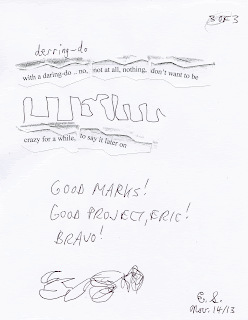 3 OF 3
derring-do
with a daring-do .. no, not at all, nothing, don't want to be
crazy for a while, to say it later on
GOOD MARKS!
GOOD PROJECT, ERIC!
BRAVO!
E. S.
Mar. 14/13